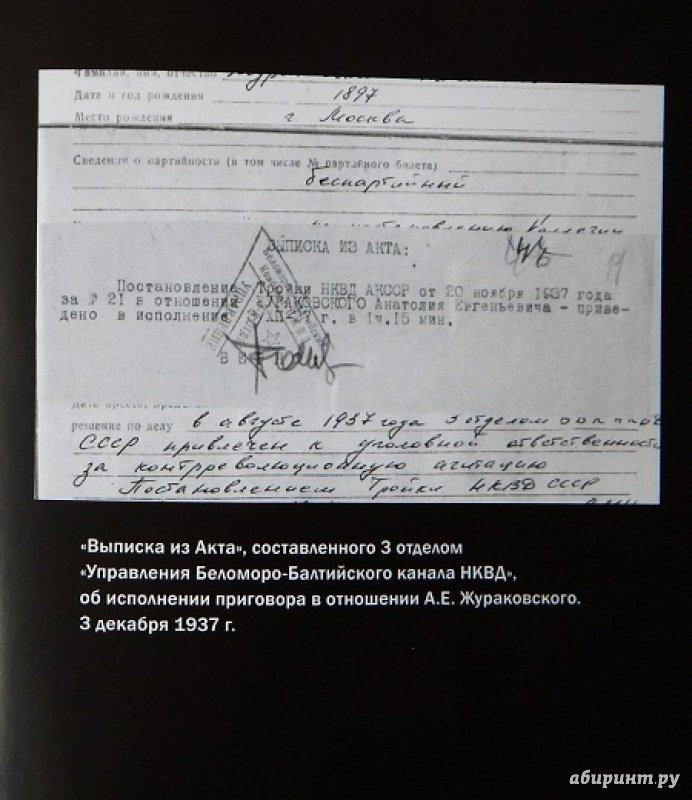 Фамилия, имя, отчество
Дата и год рождения 1897
Место рождения г. Москва
Сведения о партийности (в том числе № партийного билета)
беспартийный
постановлению Коллегии
ВЫПИСКА ИЗ АКТА:
Постановление Тройки НКВД АКССР от 20 ноября 1937 года
за № 21 в отношении ЖУРАКОВСКОГО Анатолия Евгеньевича - приве-
дено в исполнение г. в 1ч.15 мин.
решение по делу в августе 1937 года 3 отделом
СССР привлечен к уголовной ответственности
за контрреволюционную агитацию
Постановлением Тройки НКВД СССР
«Выписка из Акта», составленного 3 отделом
«Управления Беломоро-Балтийского канала НКВД»,
об исполнении приговора в отношении А.Е. Жураковского.
3 декабря 1937 г.
абиринт.ру